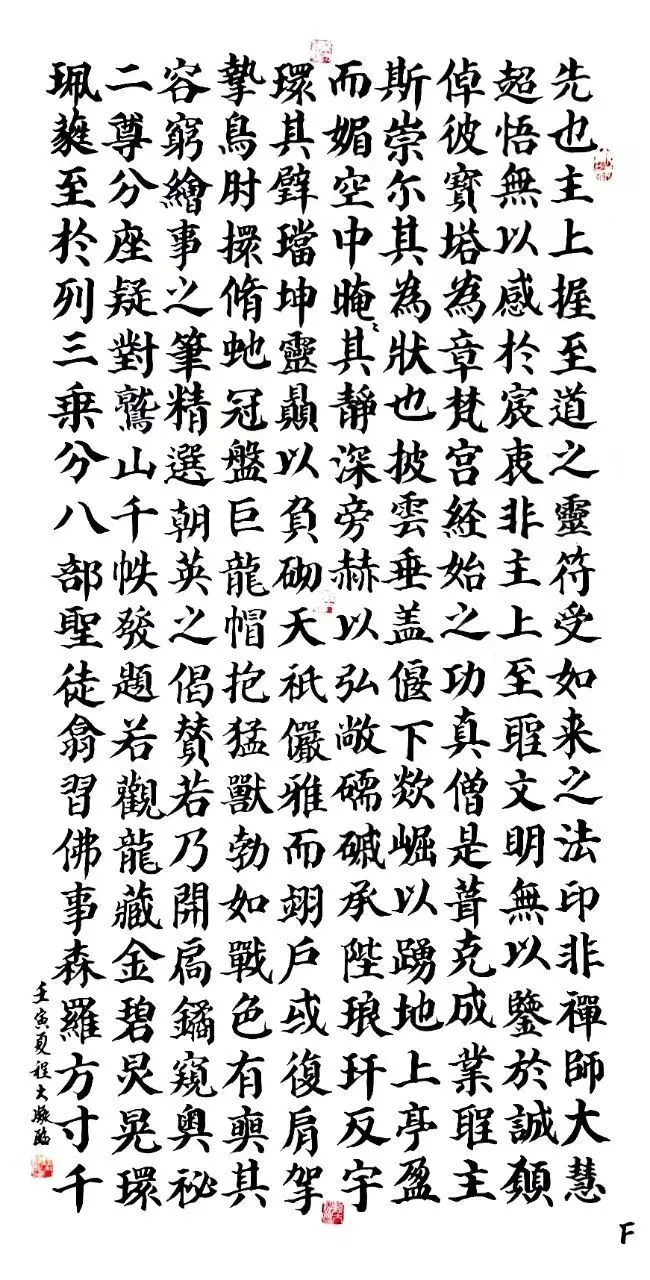 先也主上握至道之靈符受如来之法印非禪師大慧
超悟無以感於宸衷非主上至聖文明無以鑒於誠願
倬彼寶塔為章梵宮経始之功真僧是葺克成業聖主
斯崇尔其為狀也披雲垂盖偃下欻崛以踴地上亭盈
而媚空中晻〻其靜深旁赫以弘敞礝碱承陛琅玕反宇
環其壁璫坤靈贔以負砌天祇儼雅而翊户或復肩挐
摯鳥肘擐脩虵冠盤巨龍帽抱猛獸勃如戰色有奭其
容窮繪事之筆精選朝英之偈贊若乃開扃鐍窺奧祕
二尊分座疑對鷲山千帙發題若觀龍藏金碧炅晃環
珮蕤至於列三乗分八部聖徒翕習佛事森羅方寸千
壬寅夏程大凝臨
F